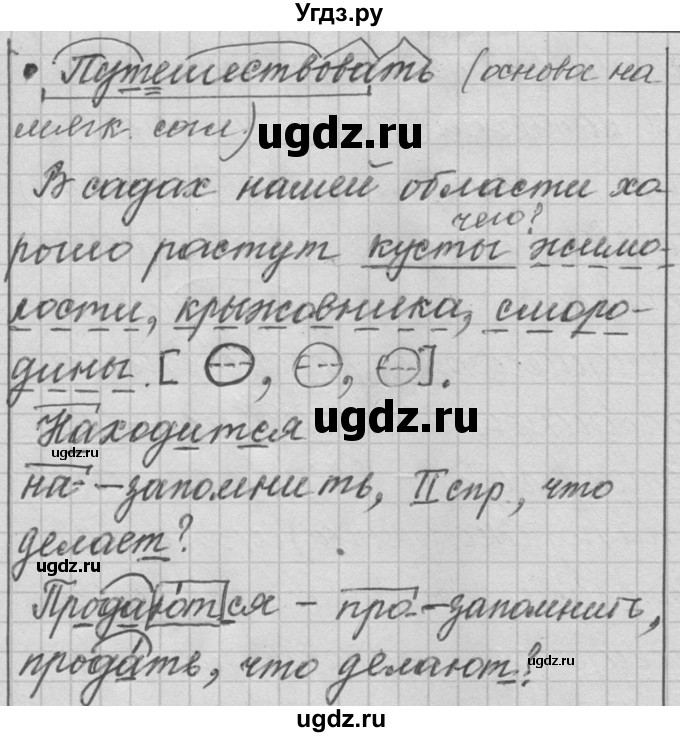 Угдз.ру
• Путешествовать (основа на
мягк. согл.)
ugdz.ru
В садах нашей области хо
чего?
рошо растут кусты жимо-
лости, крыжовника, сморо-
дины. [⊖, ⊖, ⊖].
Находится
ugdz.ru
ugdz.ru
на- - запомнить, II спр., что
делает?
ugdz.ru
Продаются - про- - запомнить,
продать, что делают?
ugdz.ru
ugdz.ru